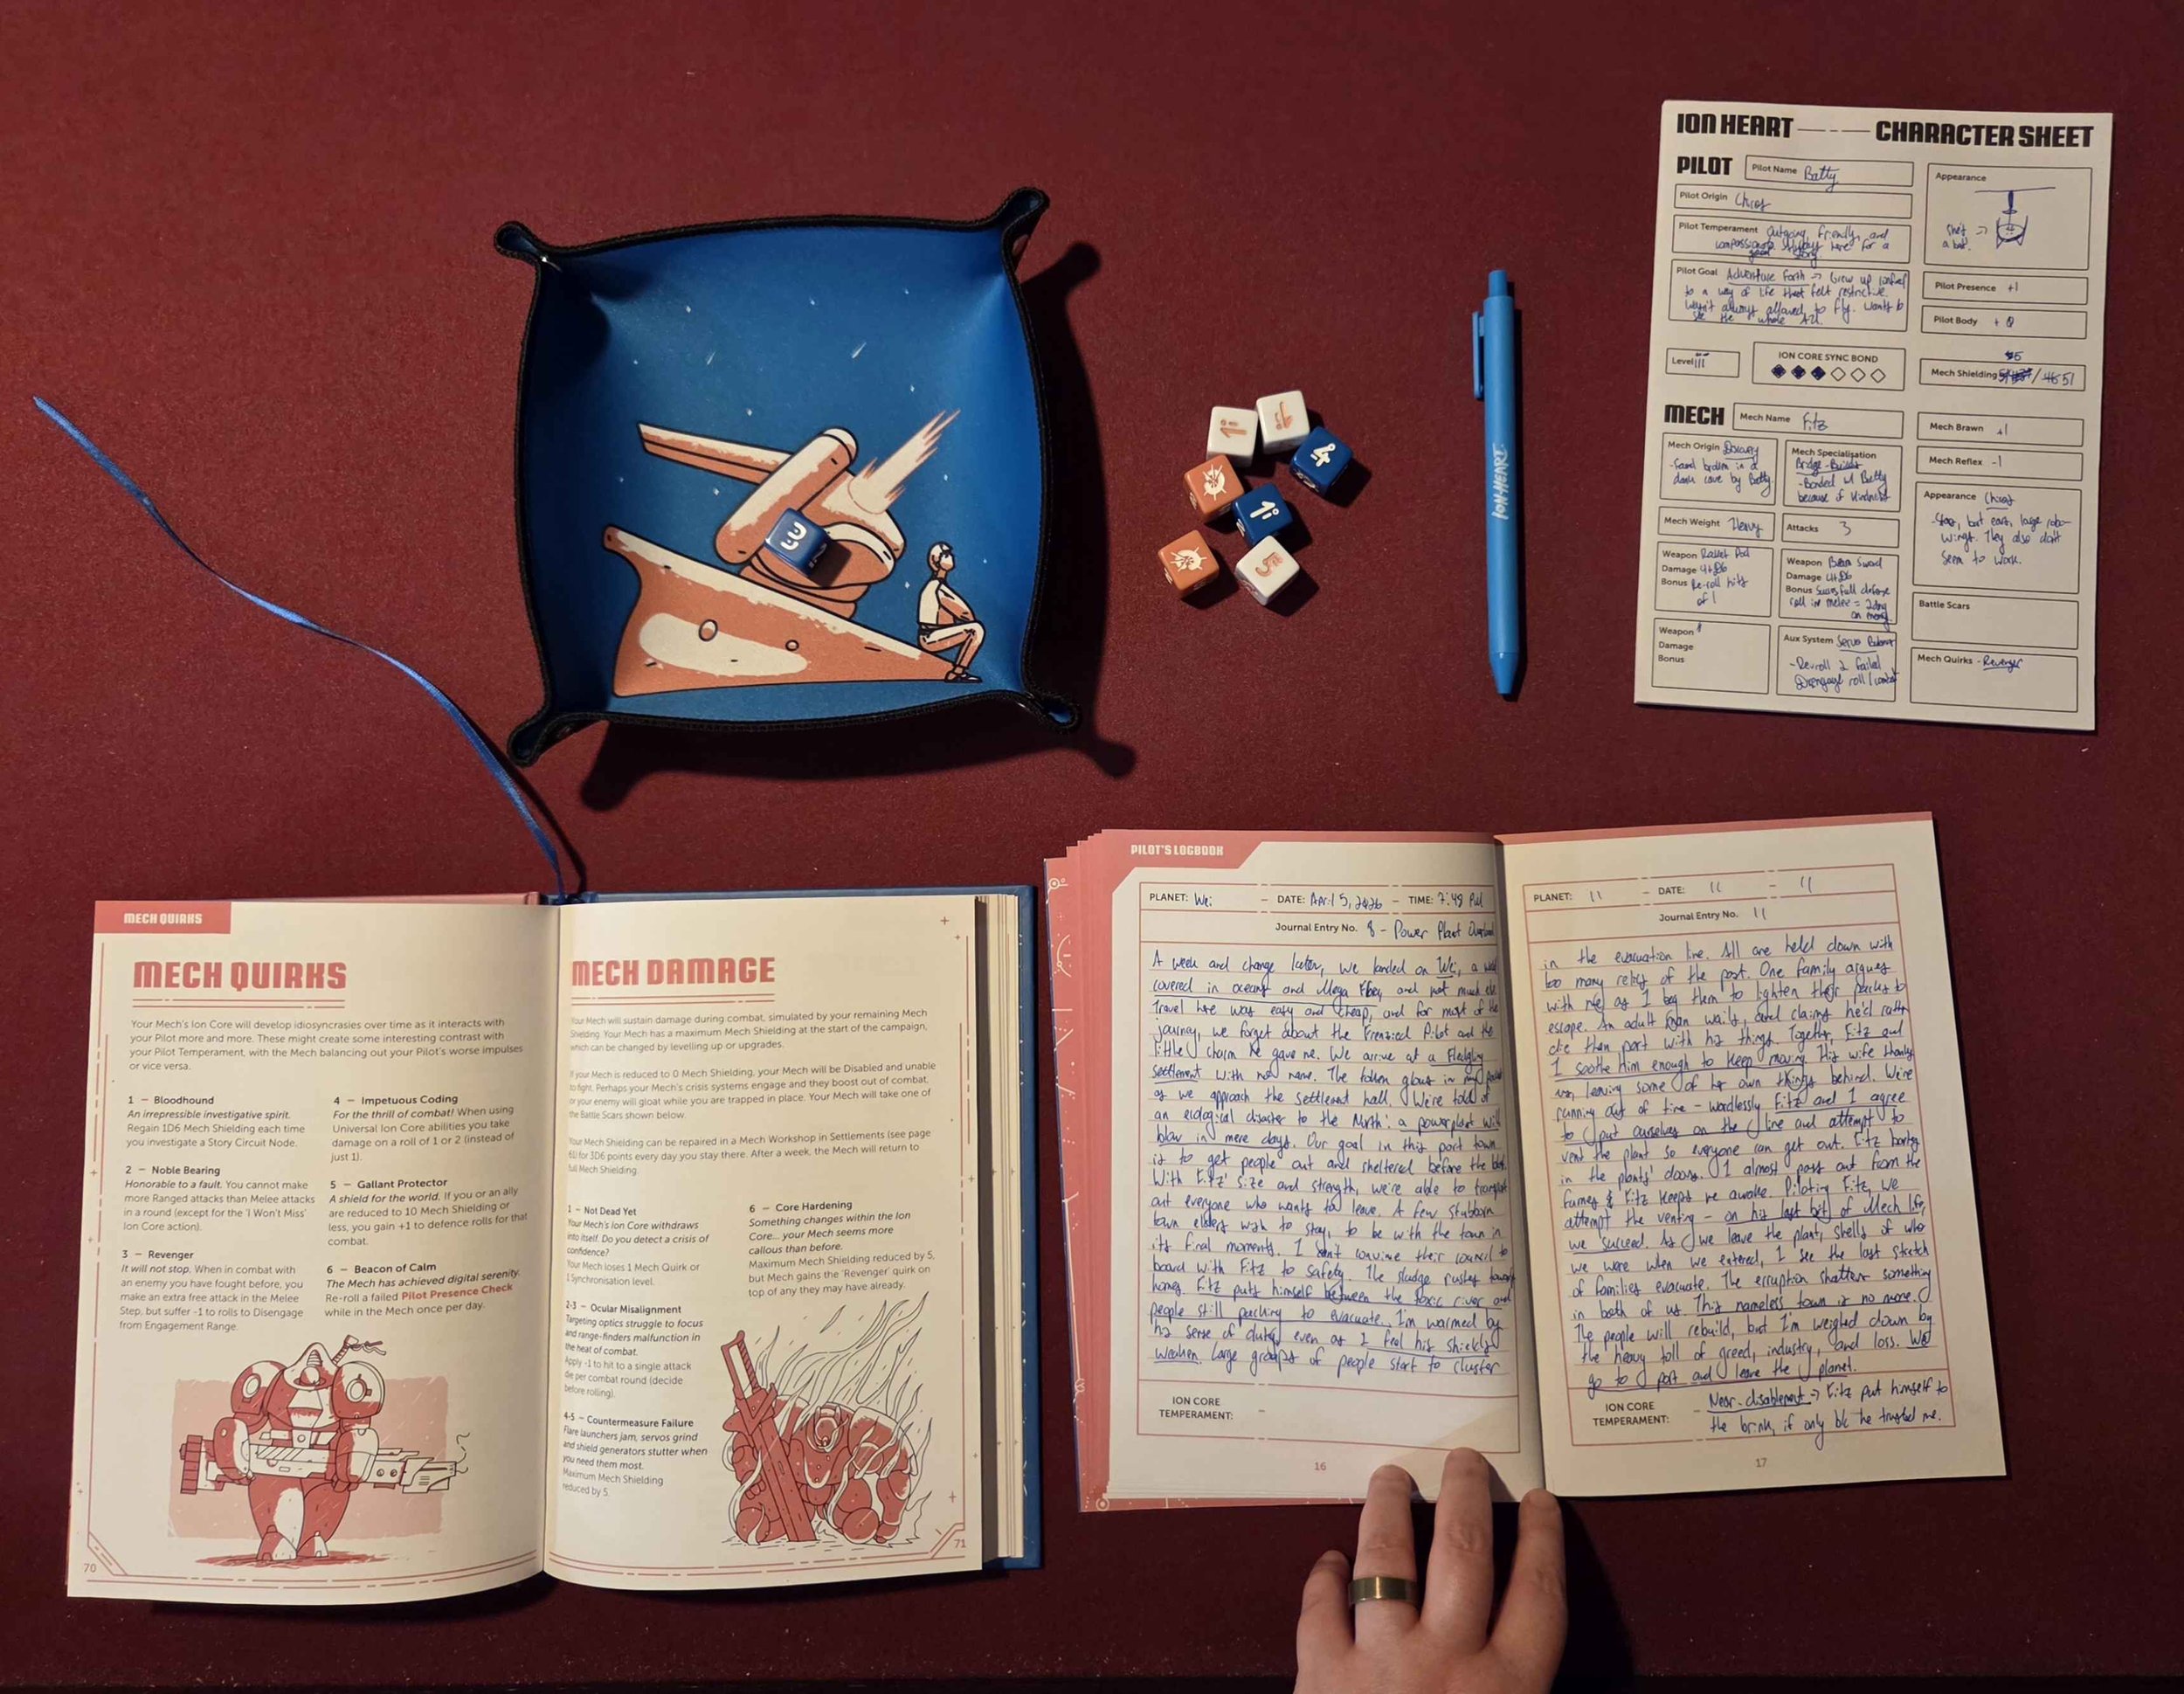 ION HEART — CHARACTER SHEET
PILOT
Pilot Name Batty
Pilot Origin Chiros
Pilot Temperament Outgoing, friendly, and
compassionate. Always here for a
good story.
Pilot Goal Adventure Forth -> Grew up
to a way of life that felt restrictive.
Wasn't always allowed to fly. Wants to
see the whole
Appearance
She's =>
a bat.
Pilot Presence +1
Pilot Body + 0
Level iii
ION CORE SYNC BOND
Mech Shielding / 51
MECH
Mech Name Fitz
Mech Origin Discovery
- Found broken in a
dark cave by Batty
Mech Specialisation
Bridge-Builder
- Bonded w/ Batty
because of kindness
Mech Brawn +1
Mech Reflex -1
Mech Weight Heavy
Attacks 3
Appearance
but ears, large robo-
wings. They also don't
seem to work.
Weapon Rocket Pod
Damage 4+D6
Bonus Re-roll hits
of 1
Weapon Beam Sword
Damage 4+D6
Bonus Successful defense
roll in melee = 2 dmg
on enemy
Battle Scars
Weapon
Damage
Bonus
Aux System Servo
- Re-roll 2 failed
Disengage roll / combat
Mech Quirks - Revenger
ION HEART
1
6
4
1
5
3
MECH QUIRKS
MECH QUIRKS
Your Mech's Ion Core will develop idiosyncrasies over time as it interacts with
your Pilot more and more. These might create some interesting contrast with
your Pilot Temperament, with the Mech balancing out your Pilot's worse impulses
or vice versa.
1 – Bloodhound
An irrepressible investigative spirit.
Regain 1D6 Mech Shielding each time
you investigate a Story Circuit Node.
2 – Noble Bearing
Honorable to a fault. You cannot make
more Ranged attacks than Melee attacks
in a round (except for the 'I Won't Miss'
Ion Core action).
3 – Revenger
It will not stop. When in combat with
an enemy you have fought before, you
make an extra free attack in the Melee
Step, but suffer -1 to rolls to Disengage
from Engagement Range.
4 – Impetuous Coding
For the thrill of combat! When using
Universal Ion Core abilities you take
damage on a roll of 1 or 2 (instead of
just 1).
5 – Gallant Protector
A shield for the world. If you or an ally
are reduced to 10 Mech Shielding or
less, you gain +1 to defence rolls for that
combat.
6 – Beacon of Calm
The Mech has achieved digital serenity.
Re-roll a failed Pilot Presence Check
while in the Mech once per day.
70
MECH DAMAGE
Your Mech will sustain damage during combat, simulated by your remaining Mech
Shielding. Your Mech has a maximum Mech Shielding at the start of the campaign,
which can be changed by levelling up or upgrades.
If your Mech is reduced to 0 Mech Shielding, your Mech will be Disabled and unable
to fight. Perhaps your Mech's crisis systems engage and they boost out of combat,
or your enemy will gloat while you are trapped in place. Your Mech will take one of
the Battle Scars shown below.
Your Mech Shielding can be repaired in a Mech Workshop in Settlements (see page
61) for 3D6 points every day you stay there. After a week, the Mech will return to
full Mech Shielding.
1 – Not Dead Yet
Your Mech's Ion Core withdraws
into itself. Do you detect a crisis of
confidence?
Your Mech loses 1 Mech Quirk or
1 Synchronisation level.
2-3 – Ocular Misalignment
Targeting optics struggle to focus
and range-finders malfunction in
the heat of combat.
Apply -1 to hit to a single attack
die per combat round (decide
before rolling).
4-5 – Countermeasure Failure
Flare launchers jam, servos grind
and shield generators stutter when
you need them most.
Maximum Mech Shielding
reduced by 5.
6 – Core Hardening
Something changes within the Ion
Core... your Mech seems more
callous than before.
Maximum Mech Shielding reduced by 5,
but Mech gains the 'Revenger' quirk on
top of any they may have already.
71
PILOT'S LOGBOOK
PLANET: Wei – DATE: April 5, 2426 – TIME: 7:48 PM
Journal Entry No. 8 - Power Plant Overload
A week and change later, we landed on Wei, a
covered in oceans and Mega and not much else.
Travel here was easy and cheap, and for most of the
journey, we forget about the Frenzied Pilot and the
little charm he gave me. We arrive at a Fledgling
settlement with no name. The token glows in my
as we approach the settlement hall. We're told of
an ecological disaster to the North: a powerplant will
blow in mere days. Our goal in this port town
is to get people out and sheltered before the
With Fitz' size and strength, we're able to transport
out everyone who wants to leave. A few stubborn
town elders wish to stay, to be with the town in
its final moments. I can't convince their council to
board with Fitz to safety. The sludge rushes toward
homes. Fitz puts himself between the toxic river and
people still packing to evacuate. I'm warmed by
his sense of duty, even as I feel his shields
weaken. Large groups of people start to cluster
ION CORE
TEMPERAMENT: –
16
PLANET: 11 – DATE: 11 – 11
Journal Entry No. 11
in the evacuation line. All are held down with
too many relics of the past. One family argues
with me as I beg them to lighten their packs to
escape. An adult wails, and claims he'd rather
die than part with his things. Together, Fitz and
I soothe him enough to keep moving. His wife thanks
us, leaving some of her own things behind. We're
running out of time - wordlessly Fitz and I agree
to put ourselves on the line and attempt to
vent the plant so everyone can get out. Fitz barges
in the plants' doors. I almost pass out from the
fumes & Fitz keeps me awake. Piloting Fitz, we
attempt the venting - on his last bit of Mech life,
we succeed. As we leave the plant, shells of who
we were when we entered, I see the last stretch
of families evacuate. The erruption shatters something
in both of us. This nameless town is no more.
The people will rebuild, but I'm weighed down by
the heavy toll of greed, industry, and loss. We
go to port and leave the planet.
ION CORE
TEMPERAMENT: - Near-disablement -> Fitz put himself to
the brink, if only b/c he trusted me.
17